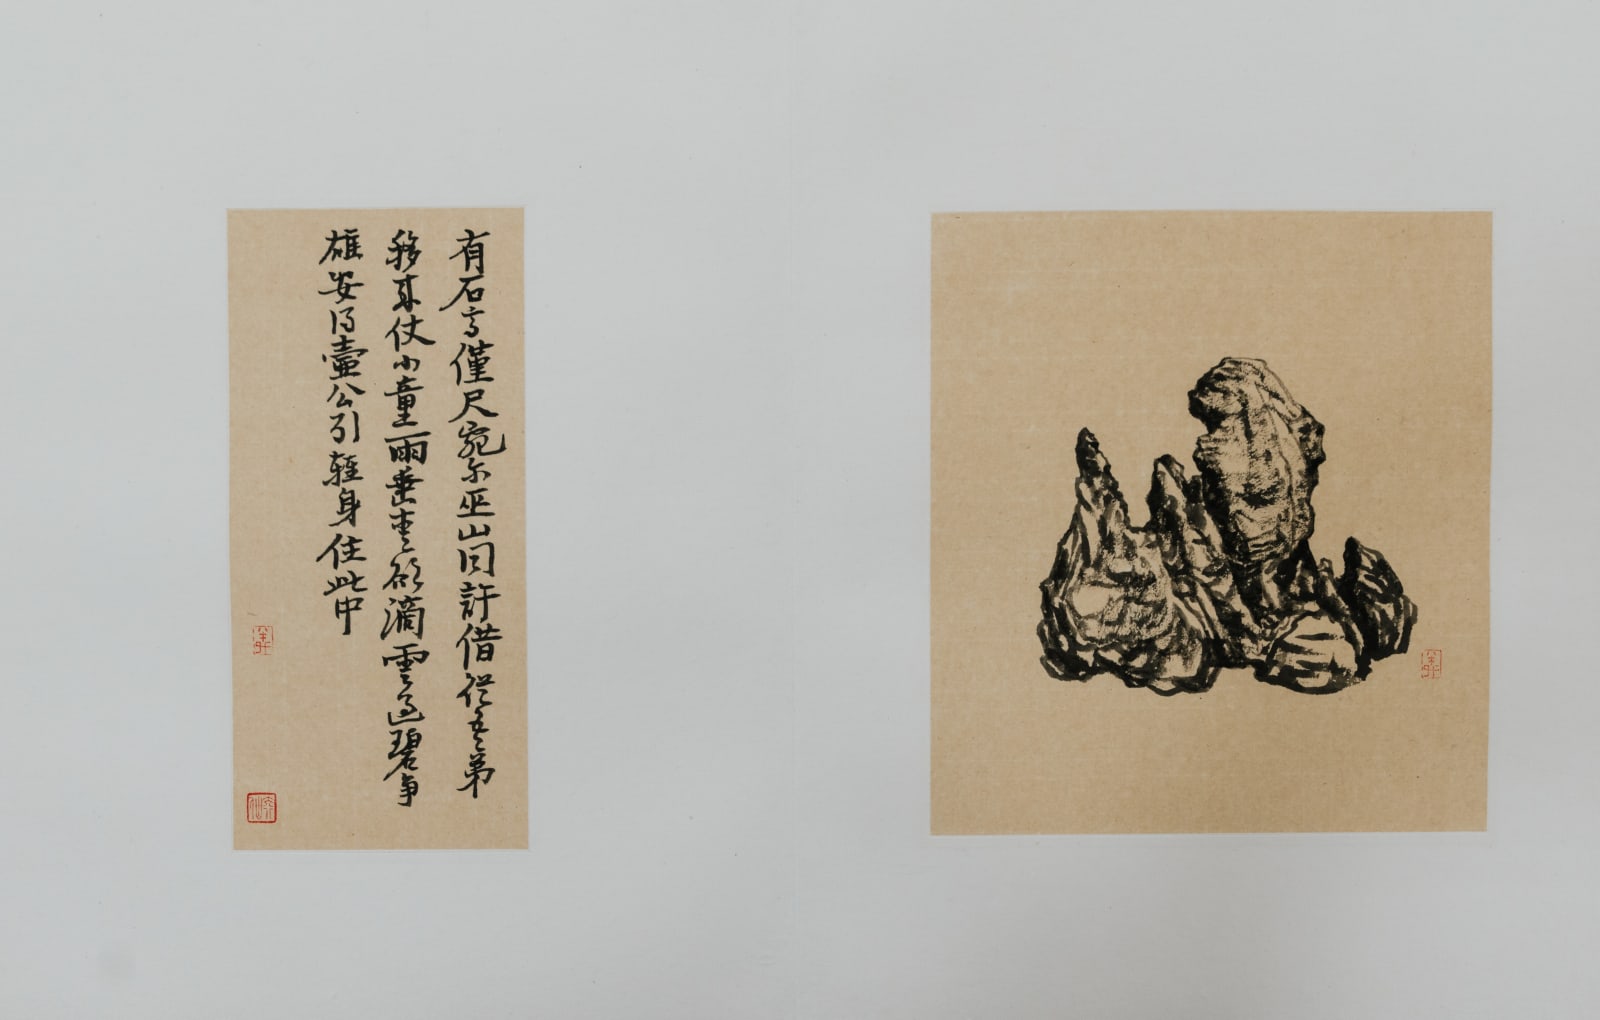 有石高僅尺宛尔巫山同許借從吾弟
移来仗小童雨垂青欲滴雲過碧爭
雄安得壺公引輕身住此中